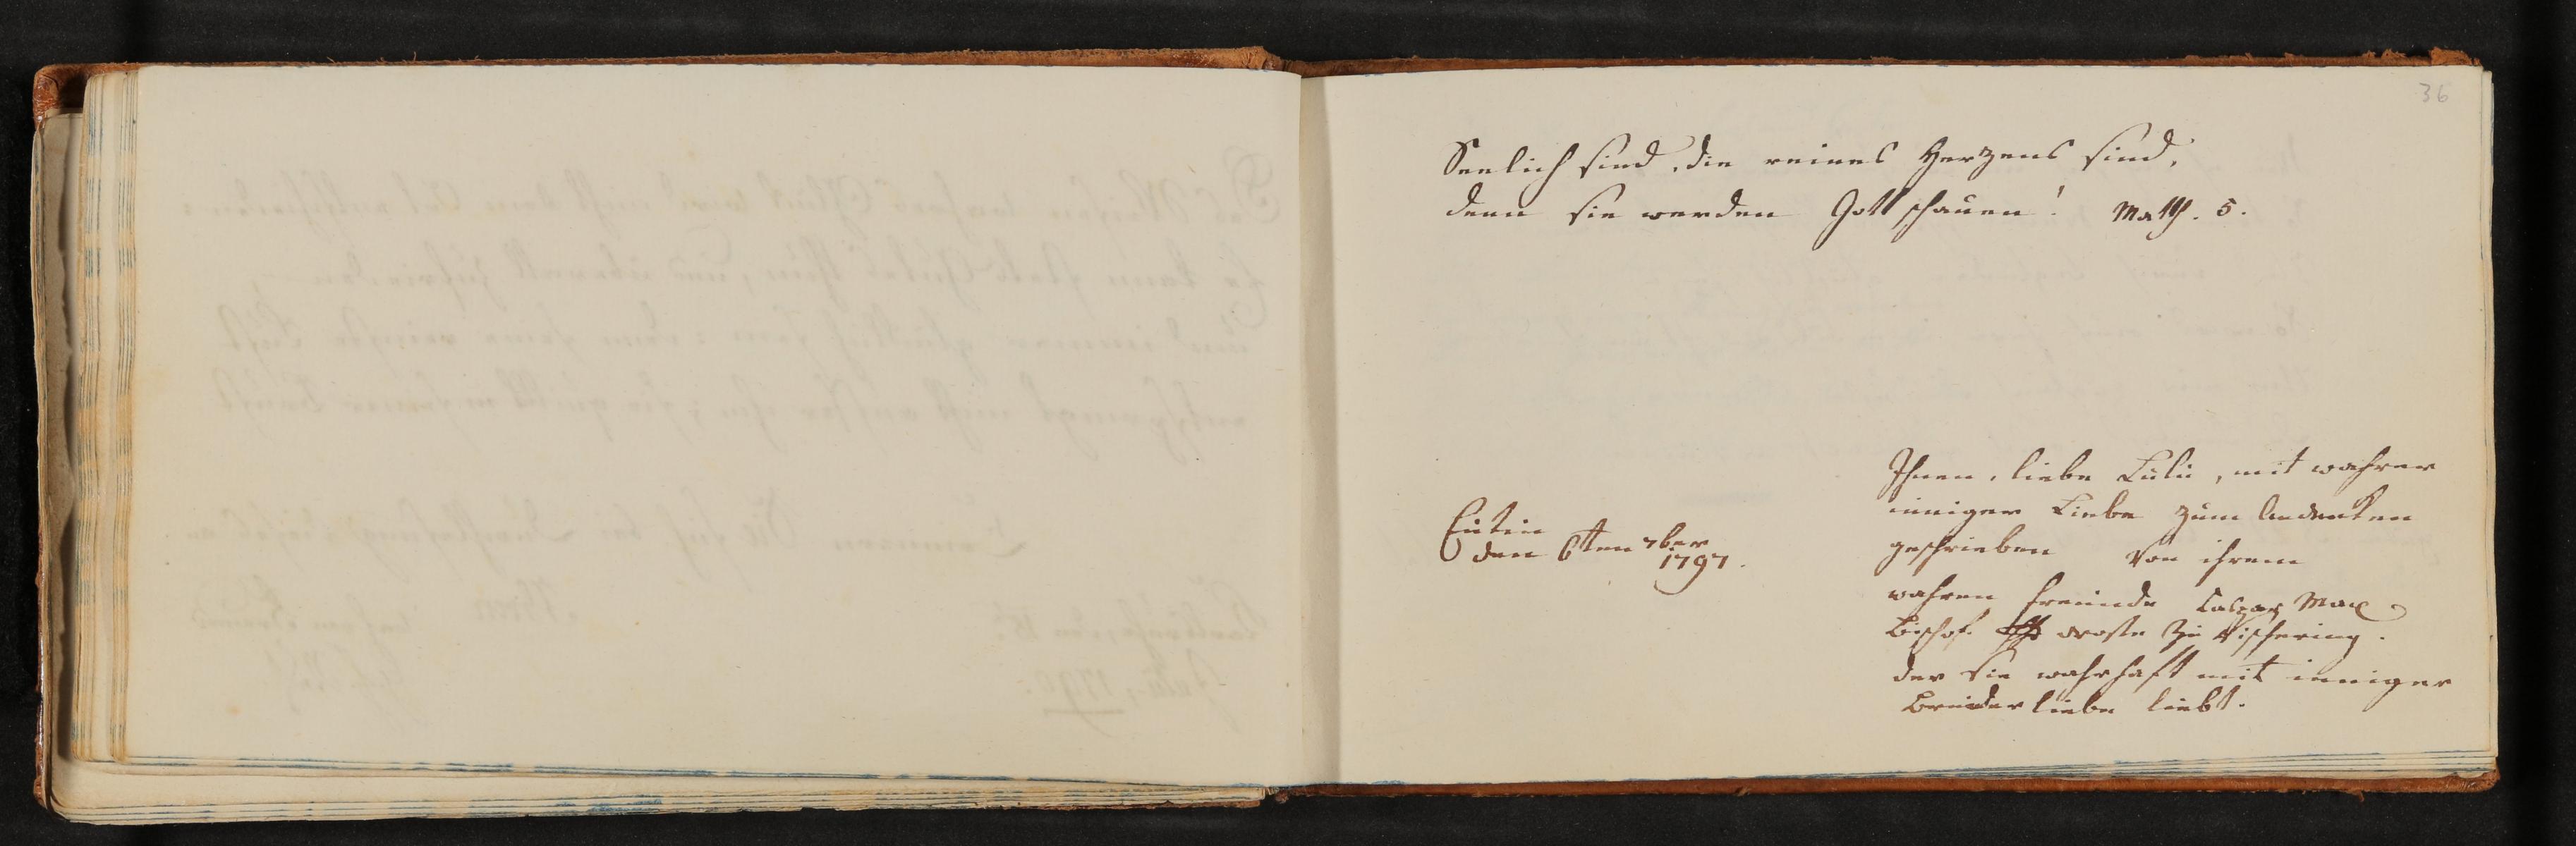 36
Seelich sind, die reines Herzens sind,
denn sie werden Gott schauen! Matth. 5.
Ihnen, liebe Lulu, mit wahrer
inniger Liebe zum Andenken
geschrieben von ihrem
wahren Freunde Caspar Max
Bischof droste zu Vischering.
der sie wahrhaft mit inniger
Bruderliebe liebt.
Eutin
den 6ten 7ber
1797.